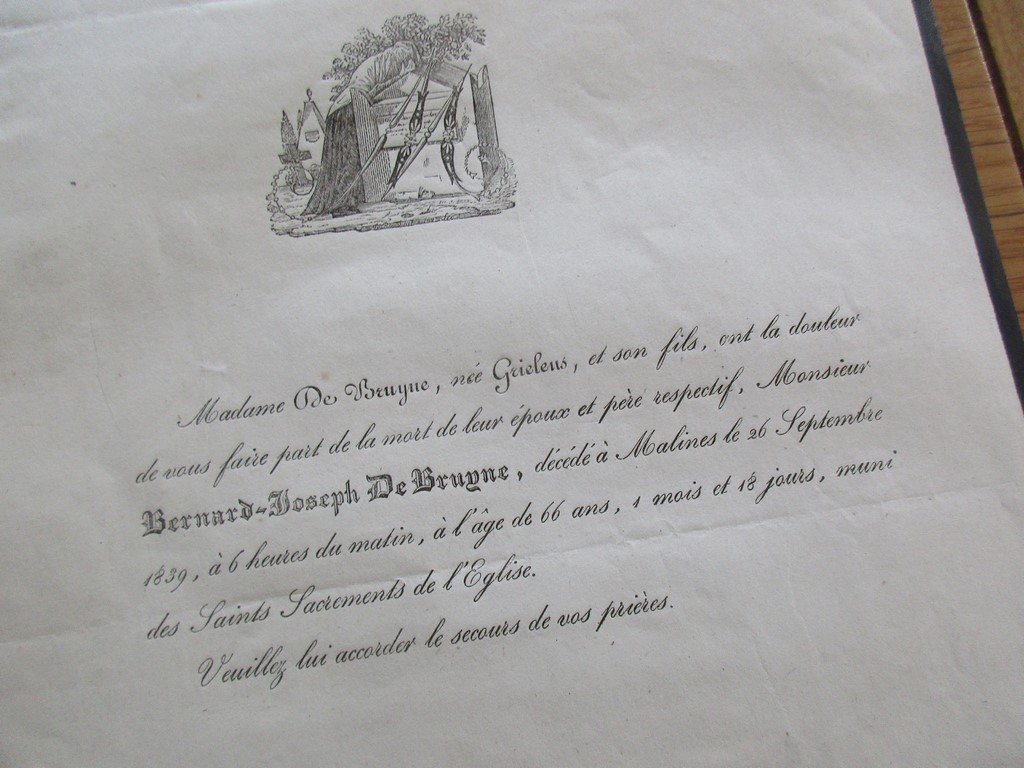 Madame De Bruyne, née Grielens, et son fils, ont la douleur
de vous faire part de la mort de leur époux et père respectif, Monsieur
Bernard-Joseph De Bruyne, décédé à Malines le 26 Septembre
1839, à 6 heures du matin, à l'âge de 66 ans, 1 mois et 18 jours, muni
des Saints Sacrements de l'Eglise.
Veuillez lui accorder le secours de vos prières.